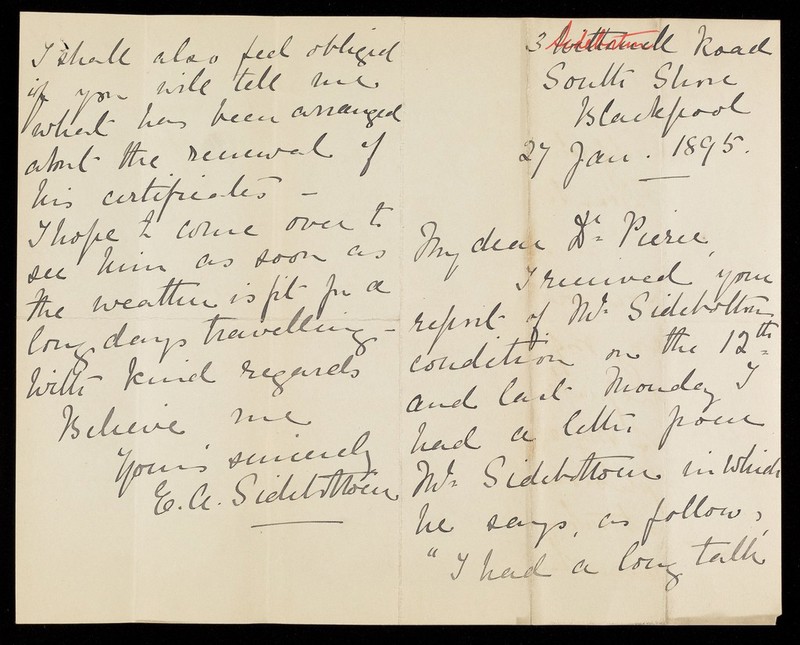 3 Road
South Shore
Blackpool
27 Jan. 1895.
My dear Dr. Pierce,
I received your
report of Mr. Sidebottoms
condition on the 12th
and last Monday I
had a letter from
Mr. Sidebottom in which
he says, as follows,
"I had a long talk
I shall also feel obliged
if you will tell me
what has been arranged
about the renewal of
his certificates –
I hope to come over to
see him as soon as
the weather is fit for a
long days travelling –
With kind regards
Believe me
Yours sincerely
E. A. Sidebottom